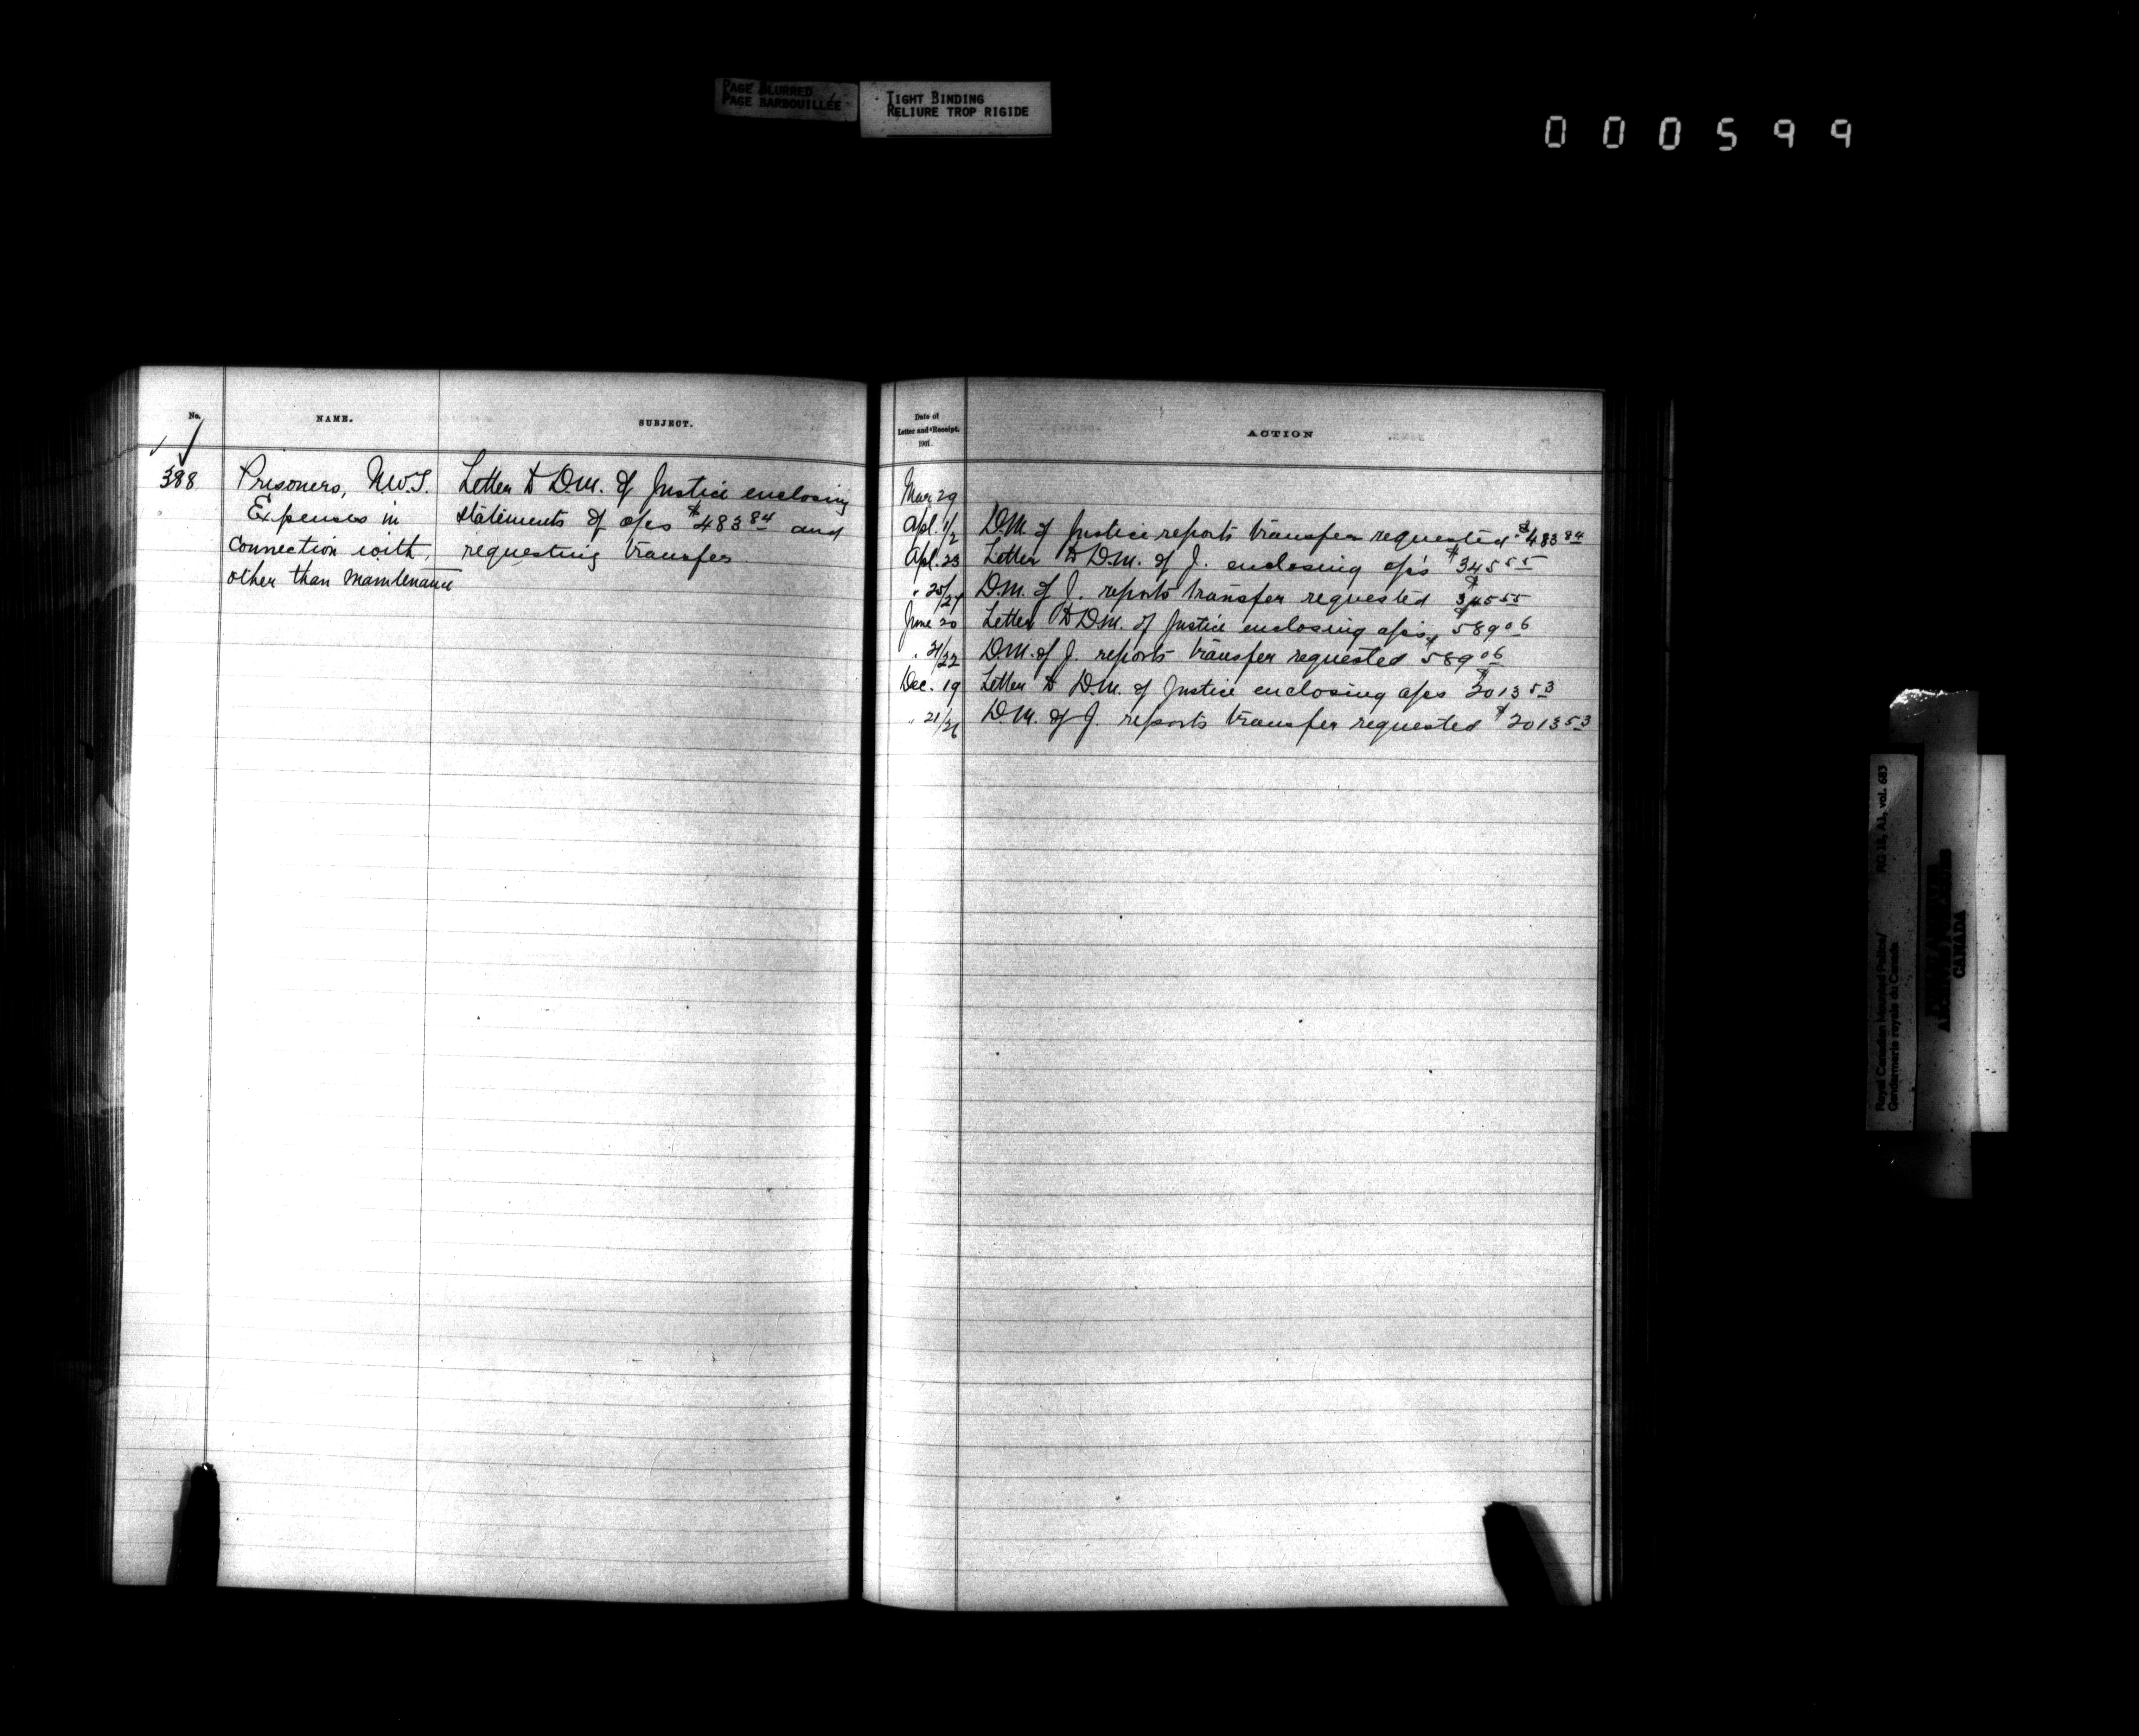 PAGE BLURRED
PAGE BARBOUILLÉE
TIGHT BINDING
RELIURE TROP RIGIDE
000599
No.
NAME.
SUBJECT.
388
Prisoners, N.W.T.
Expenses in
connection with,
other than maintenance
Letter to D.M. of Justice enclosing
statements of a/cs $483 84 and
requesting transfer
Date of
Letter and Receipt.
1901.
ACTION
Mar 29
Apl. 1/2 D.M. of Justice reports transfer requested $483 84
Apl. 23 Letter to D.M. of J. enclosing a/cs $345 55
" 25/27 D.M. of J. reports transfer requested $345 55
June 20 Letter to D.M. of Justice enclosing a/cs $589 06
" 21/22 D.M. of J. reports transfer requested $589 06
Dec. 19 Letter to D.M. of Justice enclosing a/cs $2013 53
" 21/26 D.M. of J. reports transfer requested $2013 53
Royal Canadian Mounted Police/
Gendarmerie royale du Canada
RG 18, A1, vol. 683
CANADA